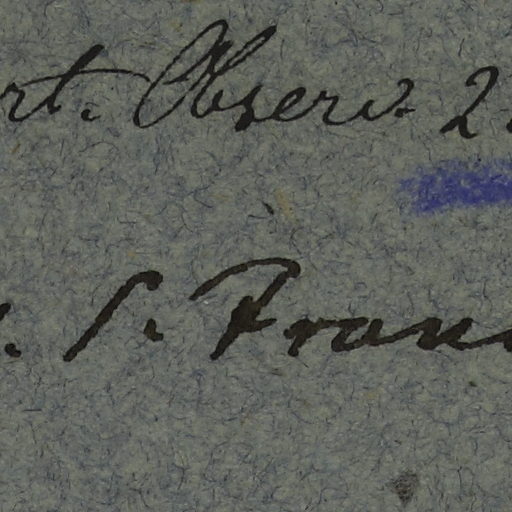 rt. Observ. 2.
. S. Fran